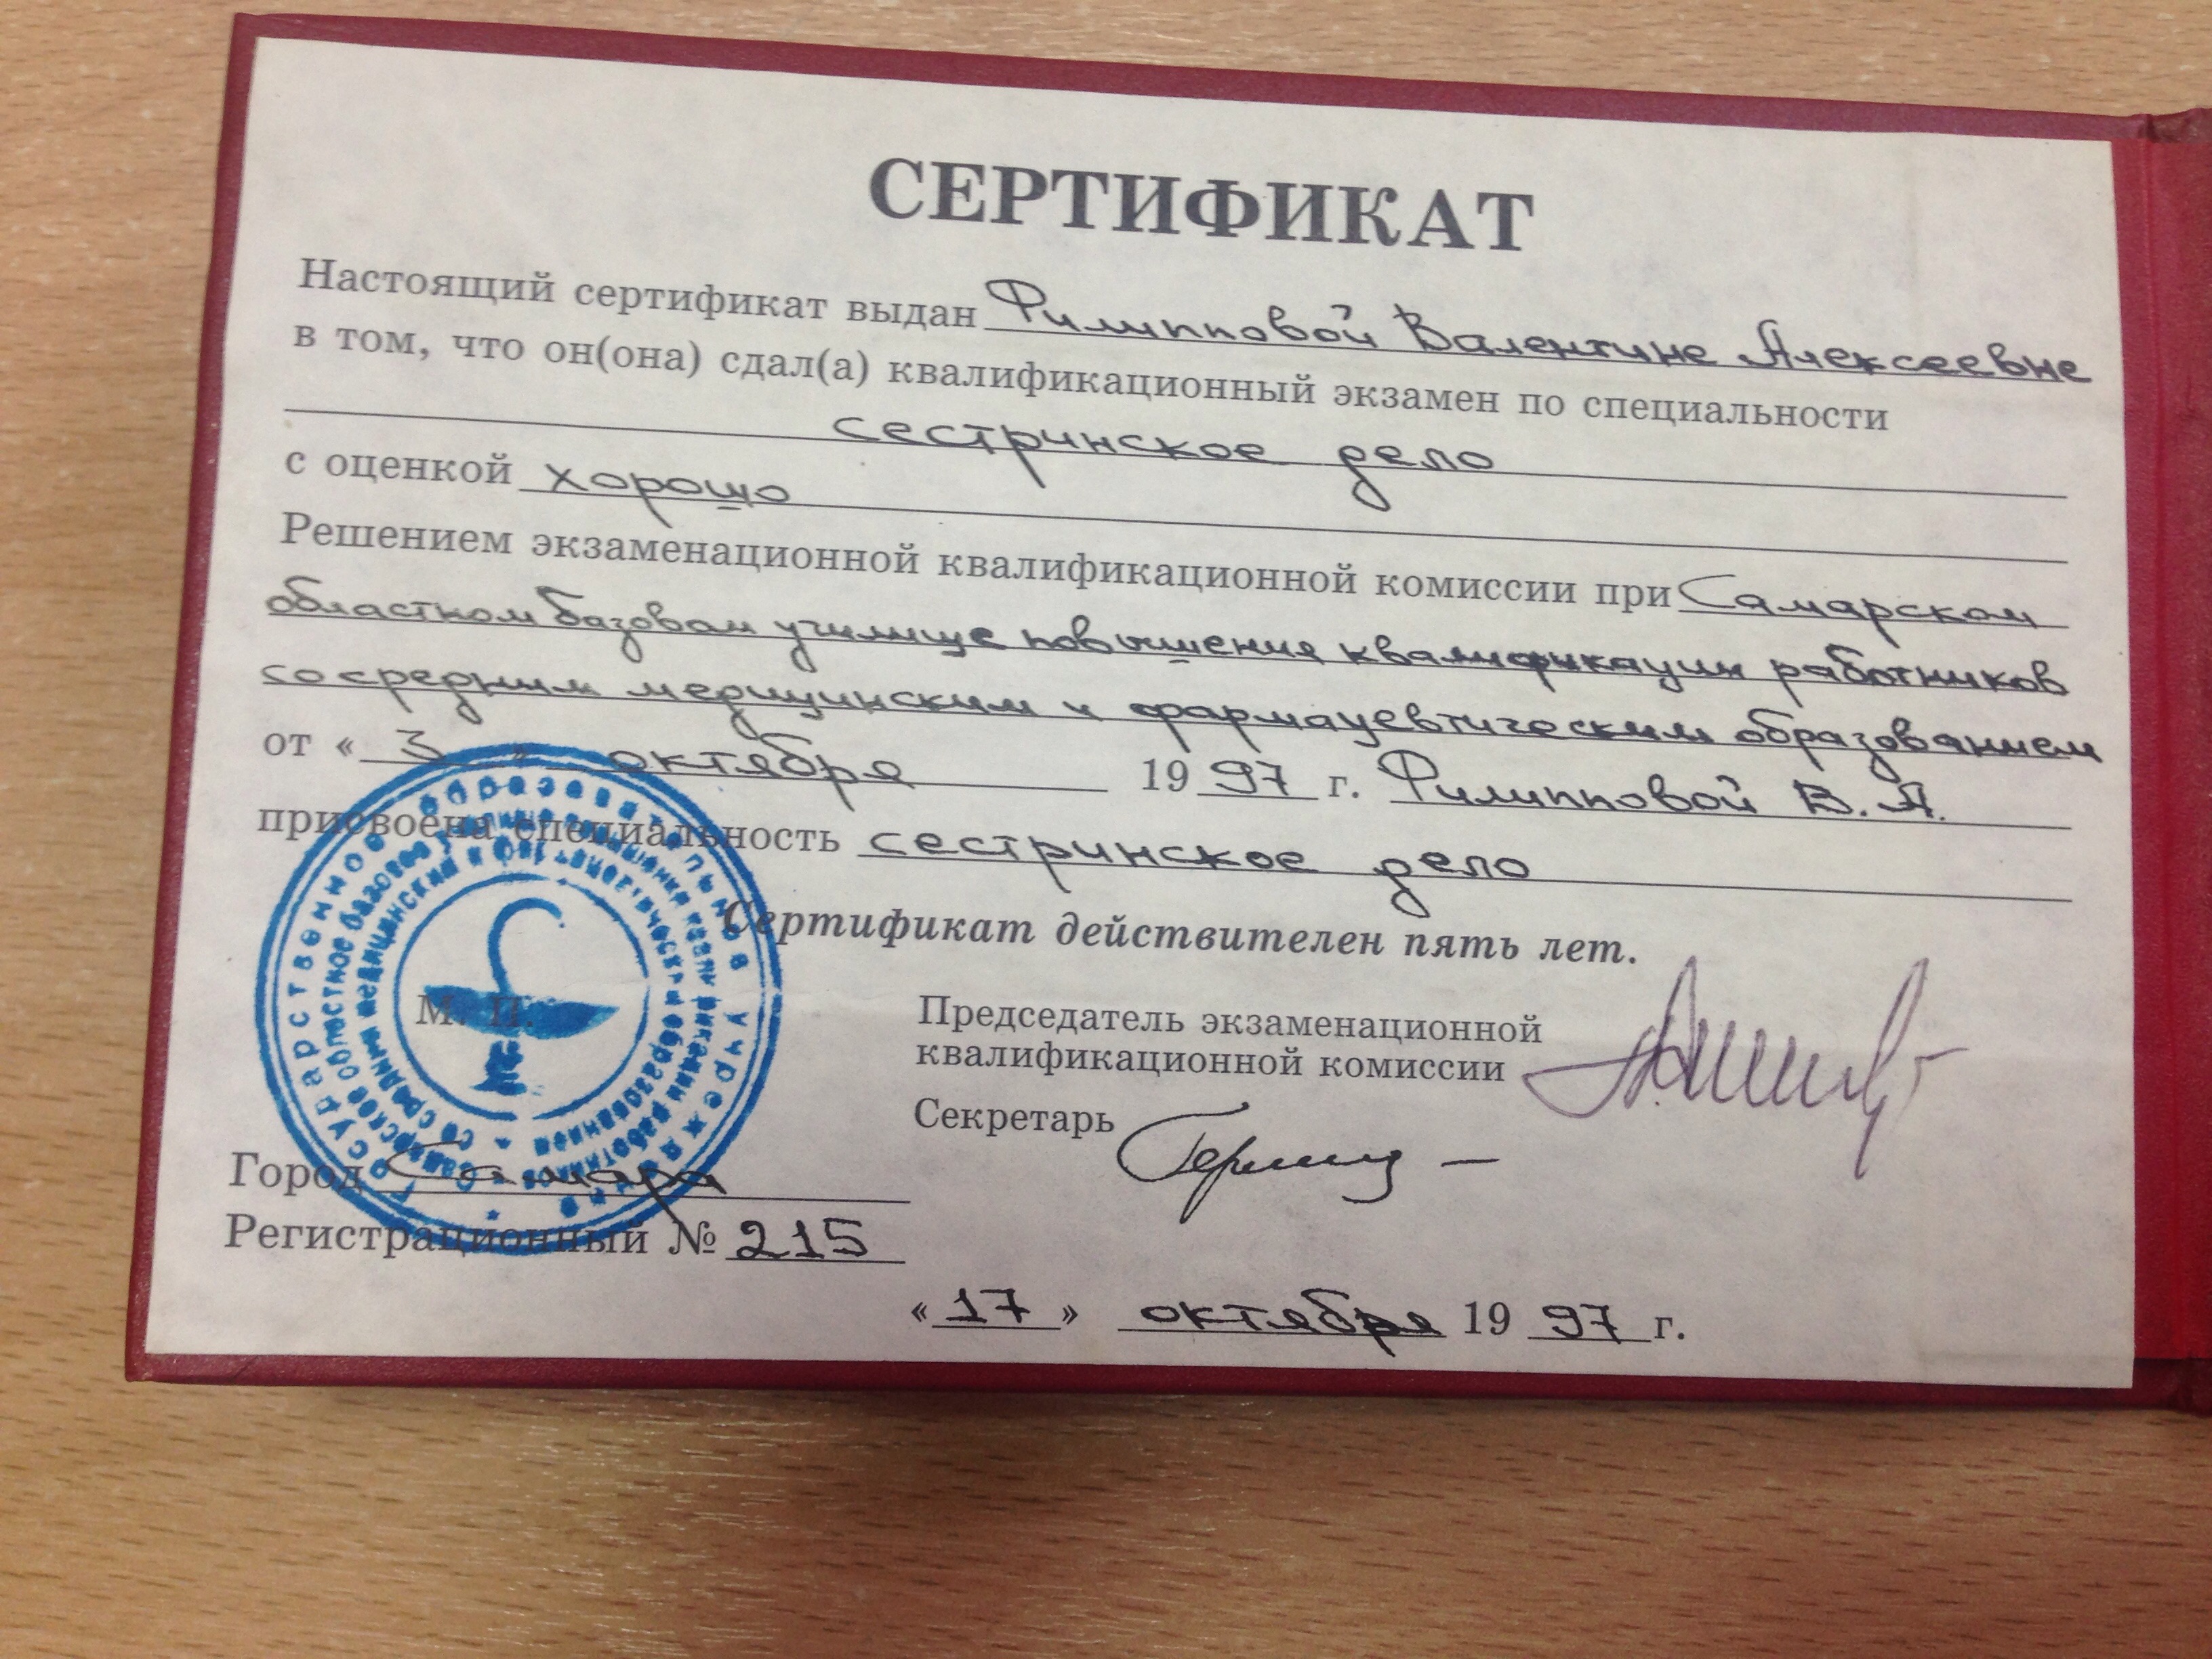 СЕРТИФИКАТ
Настоящий сертификат выдан Филипповой Валентине Алексеевне
в том, что он(она) сдал(а) квалификационный экзамен по специальности
сестринское дело
с оценкой хорошо
Решением экзаменационной квалификационной комиссии при Самарском
областном базовом училище повышения квалификации работников
со средним медицинским и фармацевтическим образованием
от « 3 » октября 19 97 г. Филипповой В.А.
присвоена специальность сестринское дело
Сертификат действителен пять лет.
М. П.
Председатель экзаменационной
квалификационной комиссии
Секретарь
Город Самара
Регистрационный № 215
« 17 » октября 19 97 г.
Государственное образовательное учреждение
Самарское областное базовое училище повышения квалификации работников
со средним медицинским и фармацевтическим образованием